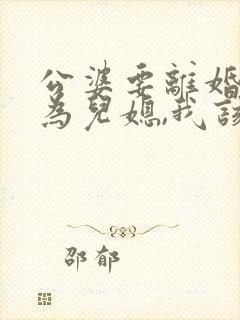 公婆要離婚
為兒媳,我該
邵郁